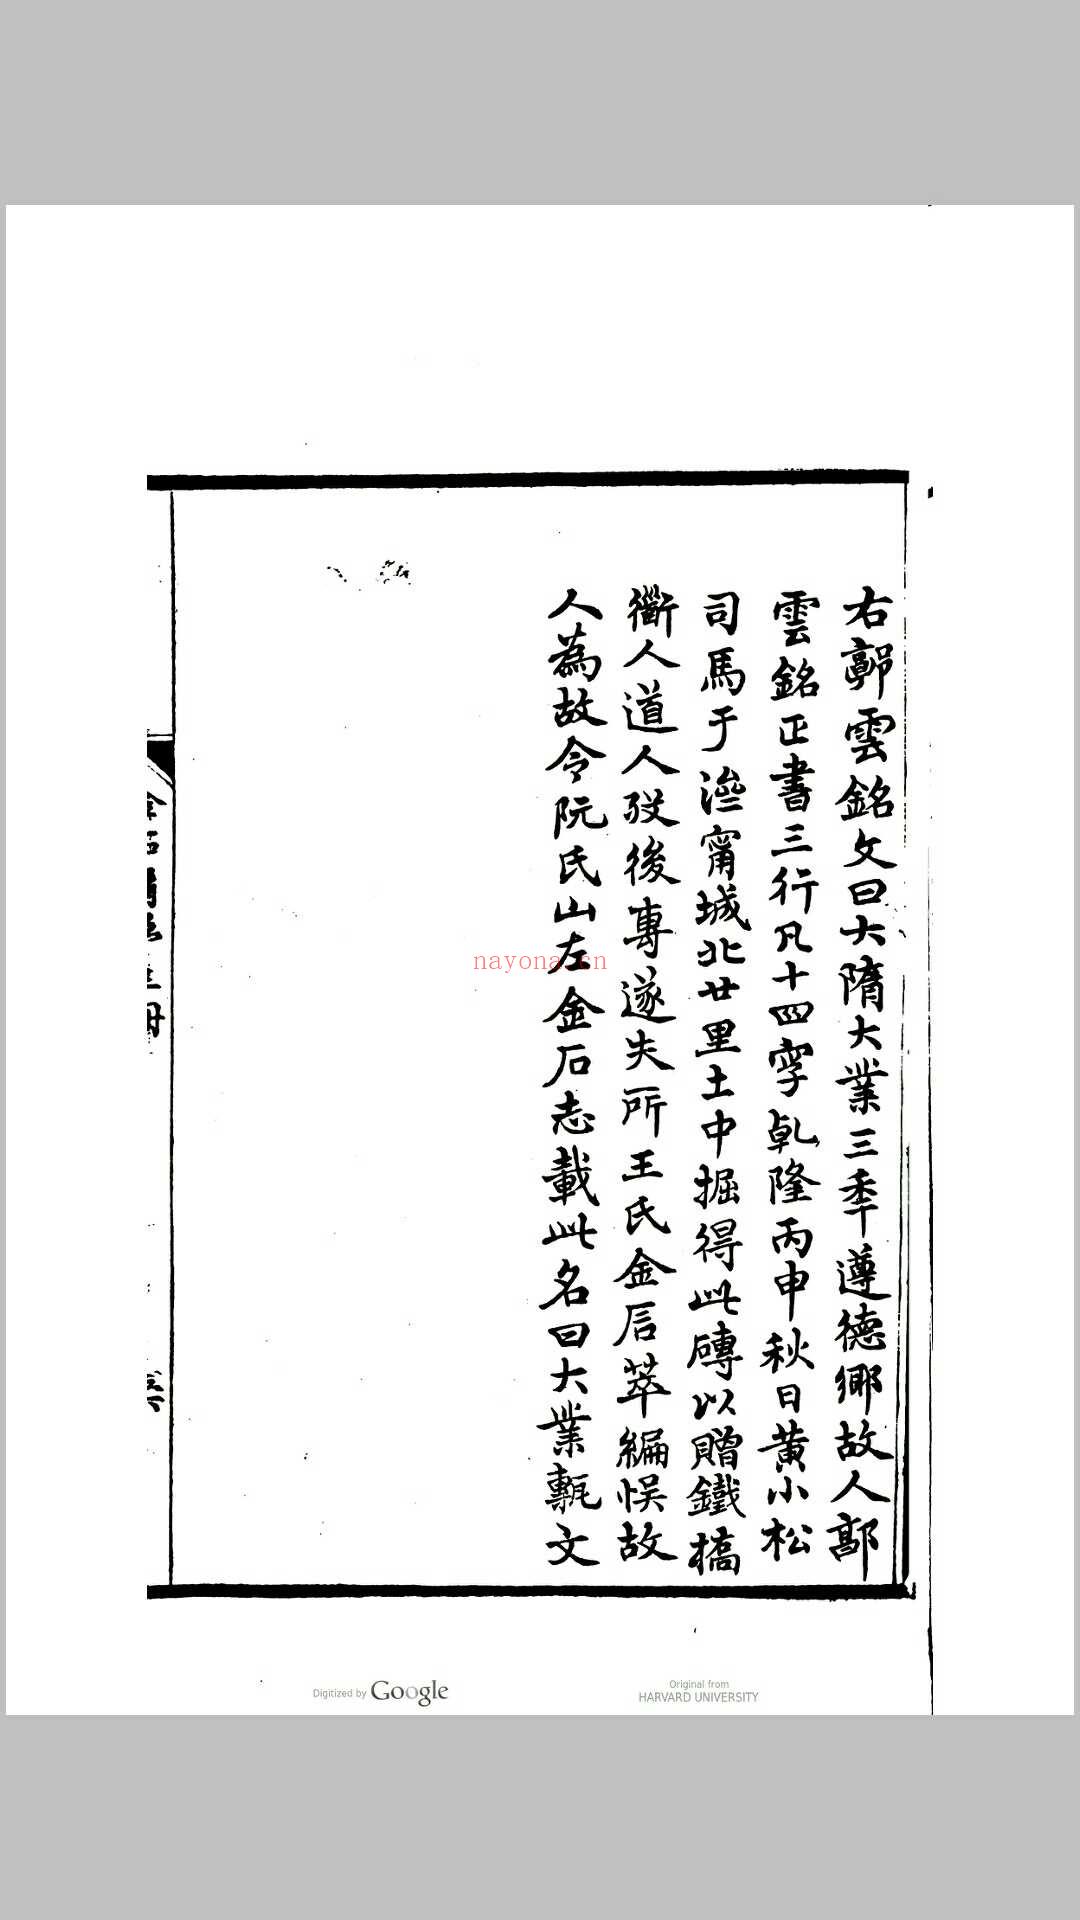 右郭雲銘文曰大隋大業三季遵德鄉故人郭
雲銘正書三行凡十四字乾隆丙申秋日黄小松
司馬于濟甯城北廿里土中掘得此磚以贈鐵橋
衢人道人歿後專遂失所王氏金石萃編悞故
人為故令阮氏山左金石志載此名曰大業甎文
nayona.cn
Digitized by Google
Original from
HARVARD UNIVERSITY